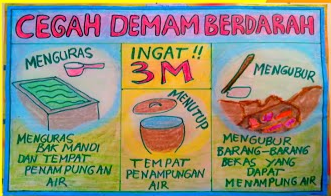 CEGAH DEMAM BERDARAH
MENGURAS
MENGURAS
BAK MANDI
DAN TEMPAT
PENAMPUNGAN
AIR
INGAT!!
3M
MENUTUP
TEMPAT
PENAMPUNGAN
AIR
MENGUBUR
MENGUBUR
BARANG-BARANG
BEKAS YANG
DAPAT
MENAMPUNG AIR